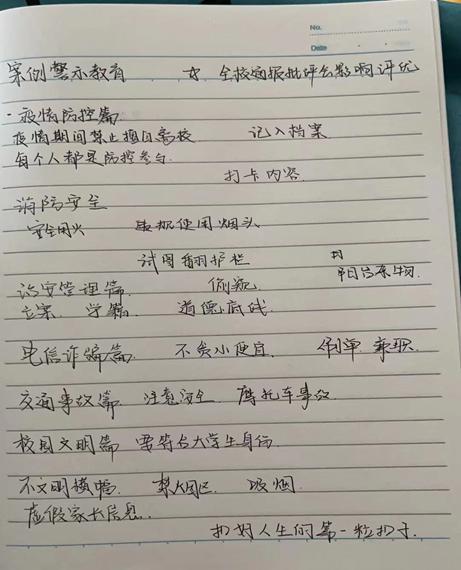 No.
Date
案例警示教育 ☆ 全校通报批评会影响评优
-疫情防控篇
疫情期间禁止擅自离校 记入档案
每个人都是防控参与
打卡内容
消防安全
安全用火 使用烟头
试图翻护栏
治安管理篇 偷窥
立案 学籍 道德底线
电信诈骗篇 不贪小便宜 刷单 兼职
交通事故篇 注意安全 摩托车事故
校园文明篇 要符合大学生身份
不文明横幅 禁烟区 吸烟
虚假家长信息
扣好人生的第一粒扣子